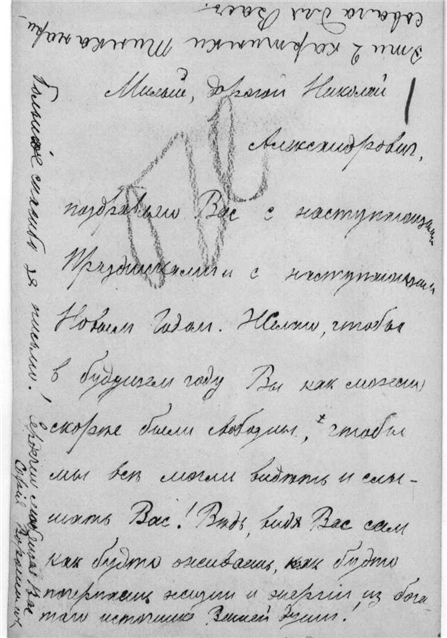 Эти 2 картинки Тинка нари
совала для Васъ.
Милый, дорогой Николай
Александрович,
поздравляю Вас с наступающими
Праздниками и с наступающим
Новым Годом. Желаю, чтобы
в будущем году Вы как можно
скорѣе были свободны, и чтобы
мы всѣ могли видѣть и слы-
шать Вас! Ведь, видя Вас сам
как будто оживаешь, как будто
почерпаешь жизни и энергии из бога
таго источника Вашей души!
Большое спасибо за письмо! Сердечно любящая Вас
София